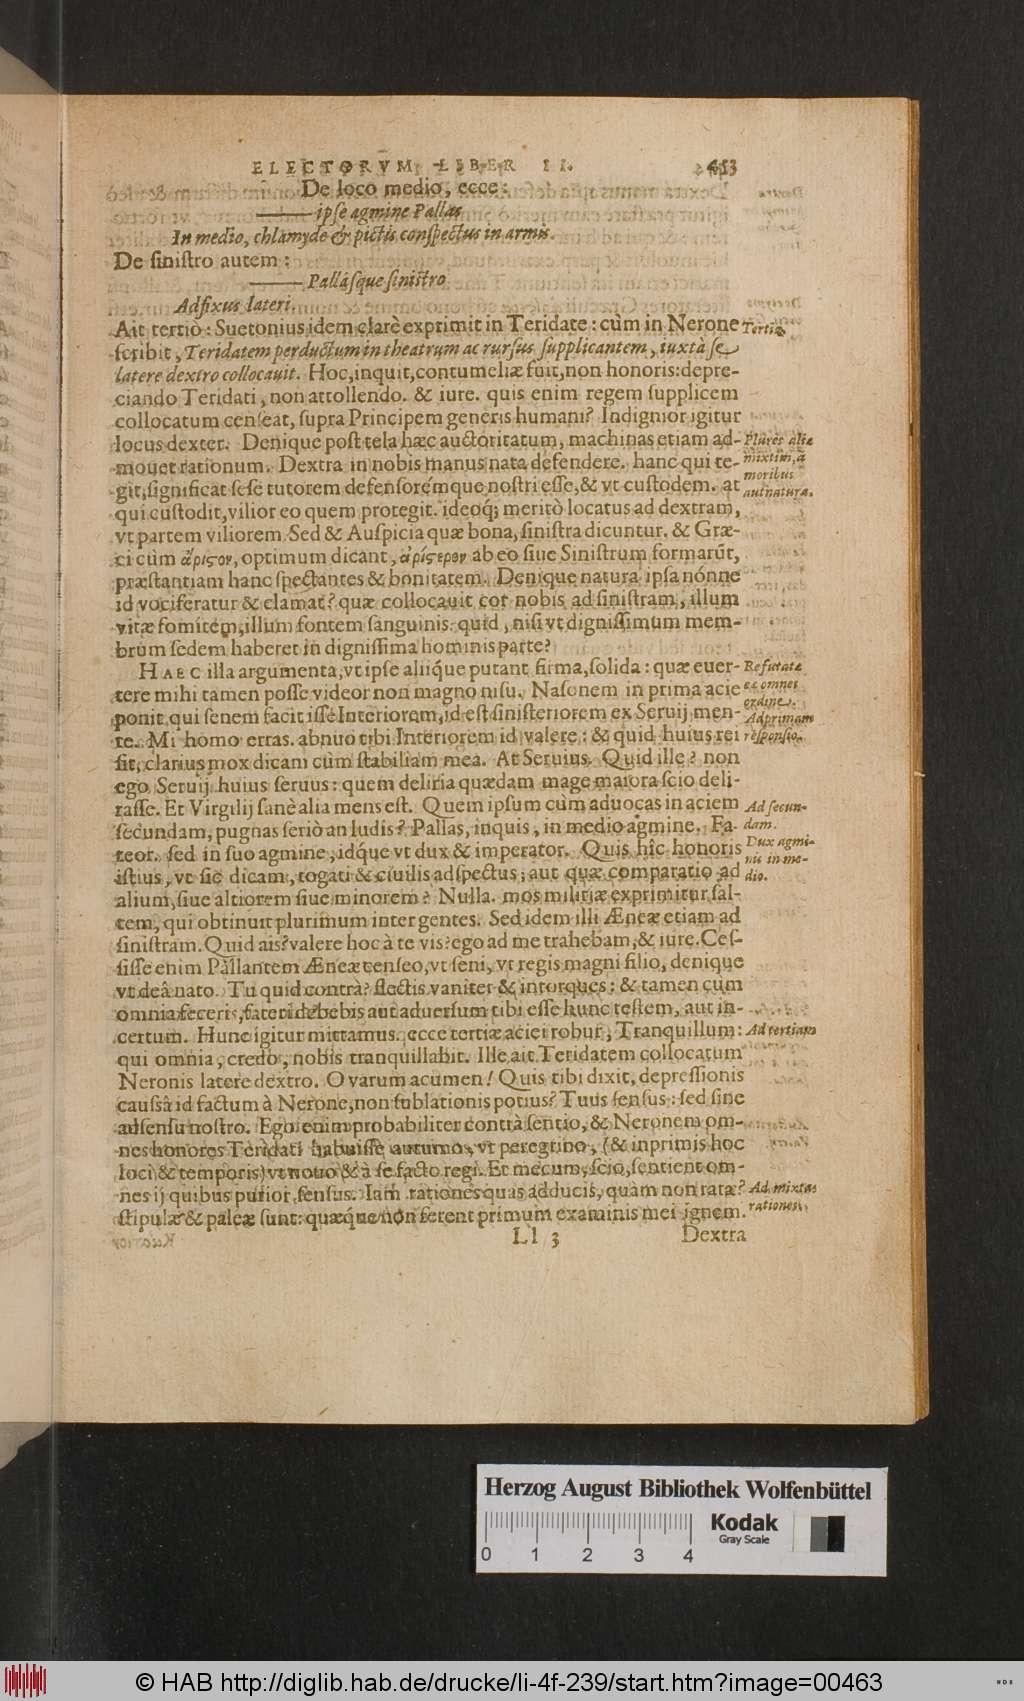 ELECTORVM LIBER II. 453
De loco medio, ecce:
ipse agmine Pallas
In medio, chlamyde & pictis conspectus in armis.
De sinistro autem:
Pallásque sinistro
Adfixus lateri.
Ait tertiò: Suetonius idem clarè exprimit in Teridate: cùm in Nerone
scribit, Teridatem perductum in theatrum ac rursus supplicantem, iuxtà se
latere dextro collocauit. Hoc, inquit, contumeliæ fuit, non honoris: depre-
ciando Teridati, non attollendo. & iure. quis enim regem supplicem
collocatum censeat, supra Principem generis humani? Indignior igitur
locus dexter. Denique post tela hæc auctoritatum, machinas etiam ad-
mouet rationum. Dextra in nobis manus nata defendere. hanc qui te-
git, significat sese tutorem defensorémque nostri esse, & vt custodem. at
qui custodit, vilior eo quem protegit. ideoq́; meritò locatus ad dextram,
vt partem viliorem. Sed & Auspicia quæ bona, sinistra dicuntur. & Græ-
ci cùm ἄριστον, optimum dicant, ἀρίστερον ab eo siue Sinistrum formarūt,
præstantiam hanc spectantes & bonitatem. Denique natura ipsa nónne
id vociferatur & clamat? quæ collocauit cor nobis ad sinistram, illum
vitæ fomitem, illum fontem sanguinis: quid, nisi vt dignissimum mem-
brum sedem haberet in dignissima hominis parte?
HAEC illa argumenta, vt ipse aliíque putant firma, solida: quæ euer-
tere mihi tamen posse videor non magno nisu. Nasonem in prima acie
ponit, qui senem facit isse Interiorem, id est sinisteriorem ex Seruij men-
te. Mi homo erras. abnuo tibi Interiorem id valere: & quid huius rei
sit, clarius mox dicam cùm stabiliam mea. At Seruius. Quid ille? non
ego Seruij huius seruus: quem deliria quædam mage maiora scio deli-
rasse. Et Virgilij sanè alia mens est. Quem ipsum cùm aduocas in aciem
secundam, pugnas seriò an ludis? Pallas, inquis, in medio agmine. Fa-
teor. sed in suo agmine, idq́ue vt dux & imperator. Quis hîc honoris
istius, vt sic dicam, togati & ciuilis adspectus; aut quæ comparatio ad
alium, siue altiorem siue minorem? Nulla. mos militiæ exprimitur sal-
tem, qui obtinuit plurimum inter gentes. Sed idem illi Æneæ etiam ad
sinistram. Quid ais? valere hoc à te vis? ego ad me trahebam, & iure. Ces-
sisse enim Pallantem Æneæ censeo, vt seni, vt regis magni filio, denique
vt deâ nato. Tu quid contrà? flectis vaniter & intorques: & tamen cùm
omnia feceris, fateri debebis aut aduersum tibi esse hunc testem, aut in-
certum. Hunc igitur mittamus. ecce tertiæ aciei robur, Tranquillum:
qui omnia, credo, nobis tranquillabit. Ille ait Teridatem collocatum
Neronis latere dextro. O varum acumen! Quis tibi dixit, depressionis
caussâ id factum à Nerone, non sublationis potius? Tuus sensus: sed sine
adsensu nostro. Ego enim probabiliter contrà sentio, & Neronem om-
nes honores Teridati habuisse autumo, vt peregrino, (& inprimis hoc
loci & temporis) vt nouo & à se facto regi. Et mecum, scio, sentient om-
nes ij quibus purior sensus. Iam rationes quas adducis, quàm non ratæ?
stipulæ & paleæ sunt: quæq́ue non ferent primum examinis mei ignem.
Ll 3 Dextra
Tertiò.
Plures aliæ
mixtim, à
moribus
aut natura.
Refutatæ
eæ omnes
ordine.
Ad primam
responsio.
Ad secun-
dam.
Dux agmi-
nis in me-
dio.
Ad tertiam
Ad mixtas
rationes.
Herzog August Bibliothek Wolfenbüttel
Kodak
Gray Scale
0 1 2 3 4
© HAB http://diglib.hab.de/drucke/li-4f-239/start.htm?image=00463